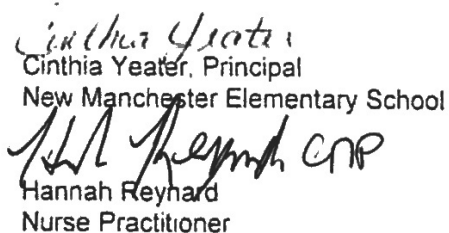 Cinthia Yeater
Cinthia Yeater, Principal
New Manchester Elementary School
Hannah Reynard CNP
Hannah Reynard
Nurse Practitioner